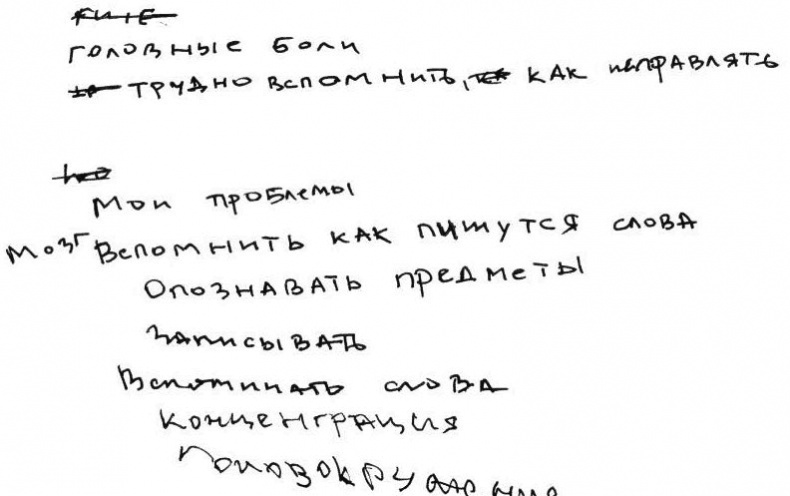 головные боли
трудно вспомнить, как исправлять
Мои проблемы
Мозг Вспомнить как пишутся слова
Опознавать предметы
Записывать
Вспоминать слова
Концентрация
Головокружения